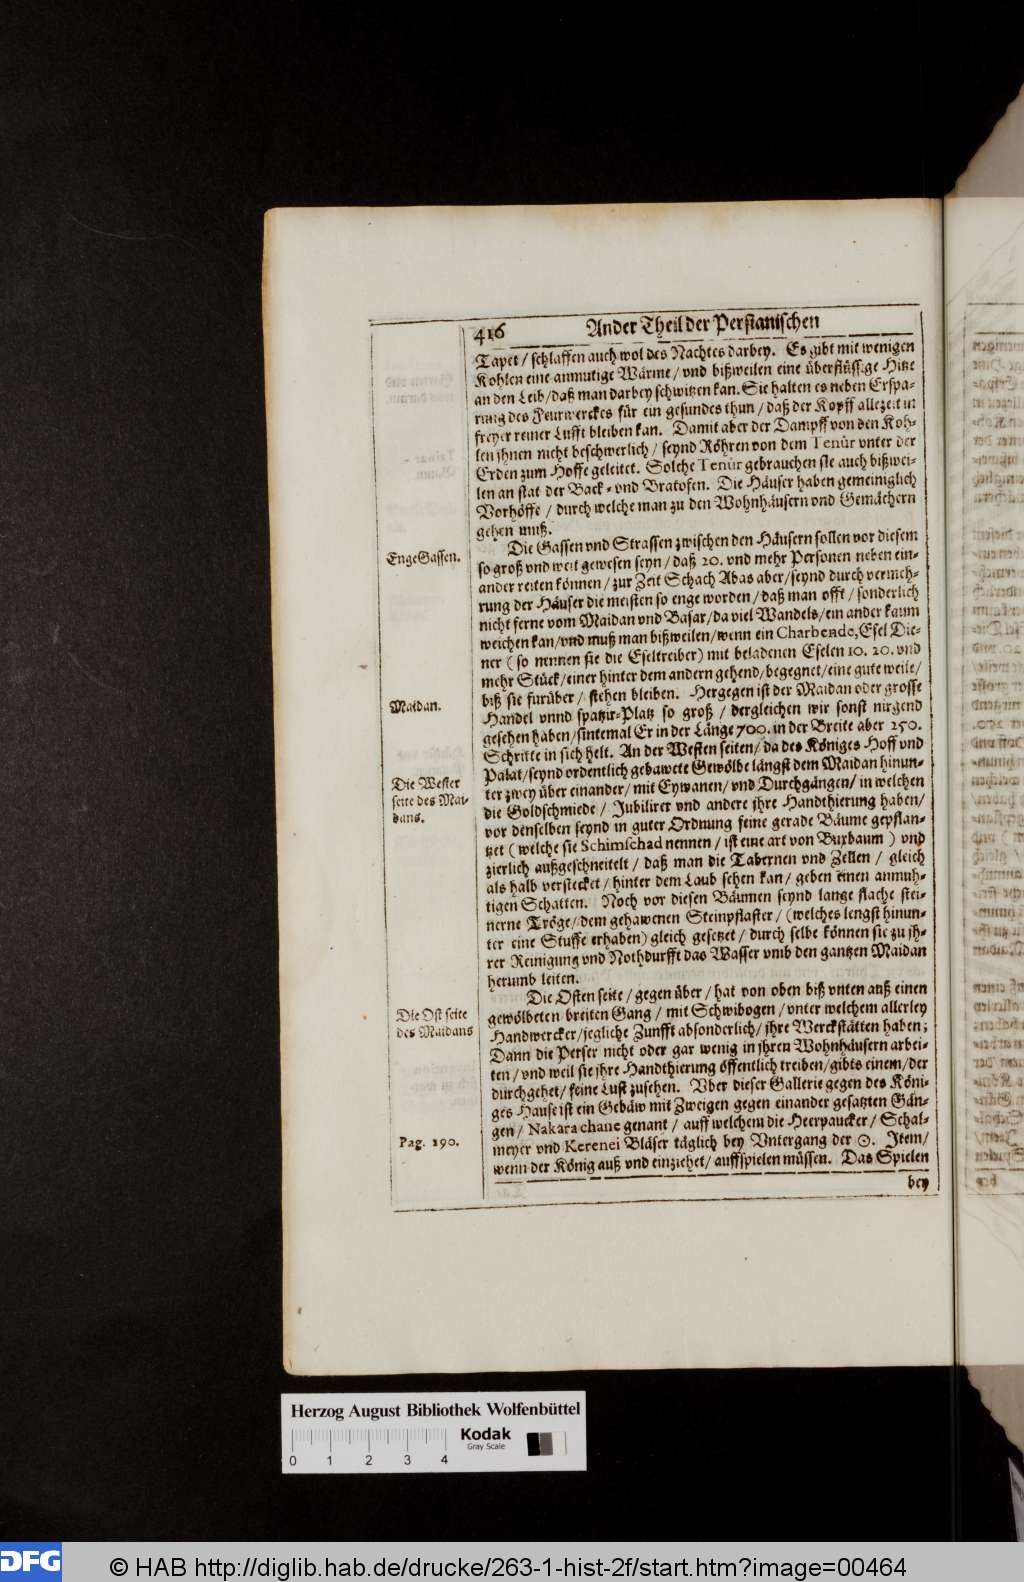 416 Ander Theil der Persianischen
Tapet / schlaffen auch wol des Nachtes darbey. Es gibt mit wenigen
Kohlen eine anmutige Wärme / vnd bißweilen eine überflüssige Hitze
an den Leib / daß man darbey schwitzen kan. Sie halten es neben Erspa-
rung des Feurwerckes für ein gesundes thun / daß der Kopff allezeit in
freyer reiner Lufft bleiben kan. Damit aber der Dampff von den Koh-
len jhnen nicht beschwerlich / seynd Röhren von dem Tenûr vnter der
Erden zum Hoffe geleitet. Solche Tenûr gebrauchen sie auch bißwei-
len an stat der Back- vnd Bratofen. Die Häuser haben gemeiniglich
Vorhöffe / durch welche man zu den Wohnhäusern vnd Gemächern
gehen muß.
Enge Gassen.
Die Gassen vnd Strassen zwischen den Häusern sollen vor diesem
so groß vnd weit gewesen seyn / daß 20. vnd mehr Personen neben ein-
ander reiten können / zur Zeit Schach Abas aber / seynd durch vermeh-
rung der Häuser die meisten so enge worden / daß man offt / sonderlich
nicht ferne vom Maidan vnd Basar / da viel Wandels / ein ander kaum
weichen kan / vnd muß man bißweilen / wenn ein Charbende, Esel Die-
ner ( so nennen sie die Eseltreiber ) mit beladenen Eselen 10. 20. vnd
mehr Stück / einer hinter dem andern gehend / begegnet / eine gute weile /
biß sie furüber / stehen bleiben. Hergegen ist der Maidan oder grosse
Maidan.
Handel vnnd spatzir-Platz so groß / dergleichen wir sonst nirgend
gesehen haben / sintemal Er in der Länge 700. in der Breite aber 250.
Schritte in sich helt. An der Westen seiten / da des Königes Hoff vnd
Palat / seynd ordentlich gebawete Gewölbe längst dem Maidan hinun-
Die Wester
seite des Mai-
dans.
ter zwey über einander / mit Eywanen / vnd Durchgängen / in welchen
die Goldschmiede / Jubilirer vnd andere jhre Handthierung haben /
vor denselben seynd in guter Ordnung feine gerade Bäume gepflan-
tzet ( welche sie Schimschad nennen / ist eine art von Buxbaum ) vnd
zierlich außgeschneitelt / daß man die Tabernen vnd Zellen / gleich
als halb verstecket / hinter dem Laub sehen kan / geben einen anmuh-
tigen Schatten. Noch vor diesen Bäumen seynd lange flache stei-
nerne Tröge / dem gehawenen Steinpflaster / (welches lengst hinun-
ter eine Stuffe erhaben) gleich gesetzet / durch selbe können sie zu jh-
rer Reinigung vnd Nothdurfft das Wasser vmb den gantzen Maidan
herumb leiten.
Die Ost seite
des Maidans
Die Osten seite / gegen über / hat von oben biß vnten auß einen
gewölbeten breiten Gang / mit Schwibogen / vnter welchem allerley
Handwercker / jegliche Zunfft absonderlich / jhre Werckstätten haben;
Dann die Perser nicht oder gar wenig in jhren Wohnhäusern arbei-
ten / vnd weil sie jhre Handthierung öffentlich treiben / gibts einem / der
durchgehet / keine Lust zusehen. Vber dieser Gallerie gegen des Köni-
ges Hause ist ein Gebäw mit Zweigen gegen einander gesatzten Gän-
gen / Nakara chane genant / auff welchem die Heerpaucker / Schal-
Pag. 290.
meyer vnd Kerenei Bläser täglich bey Vntergang der ☉. Item /
wenn der König auß vnd einziehet / auffspielen müssen. Das Spielen
bey
Herzog August Bibliothek Wolfenbüttel
Kodak
Gray Scale
0 1 2 3 4
DFG © HAB http://diglib.hab.de/drucke/263-1-hist-2f/start.htm?image=00464